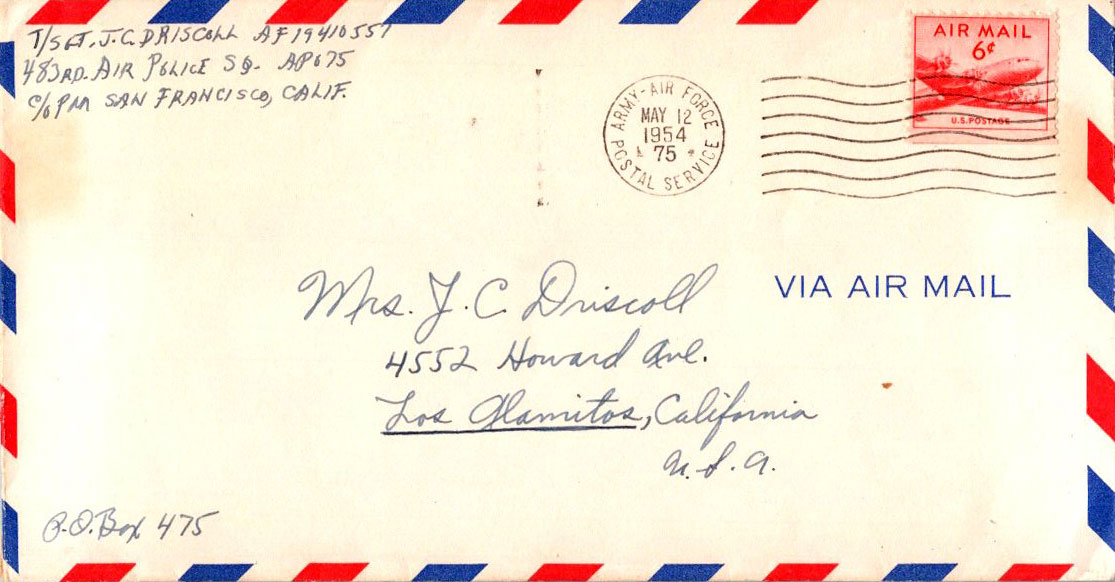 T/SGT. J.C. DRISCOLL AF 19410557
483RD. AIR POLICE SQ. APO 75
c/o PM SAN FRANCISCO, CALIF.
AIR MAIL
6¢
U.S. POSTAGE
ARMY-AIR FORCE
MAY 12
1954
75
POSTAL SERVICE
VIA AIR MAIL
Mrs. J. C. Driscoll
4552 Howard Ave.
Los Alamitos, California
U.S.A.
P.O. Box 475